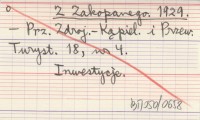 Z Zakopanego. 1929.
– Prz. Zdroj.-Kąpiel. i Przew.
Turyst. 18, nr 4.
Inwestycje.